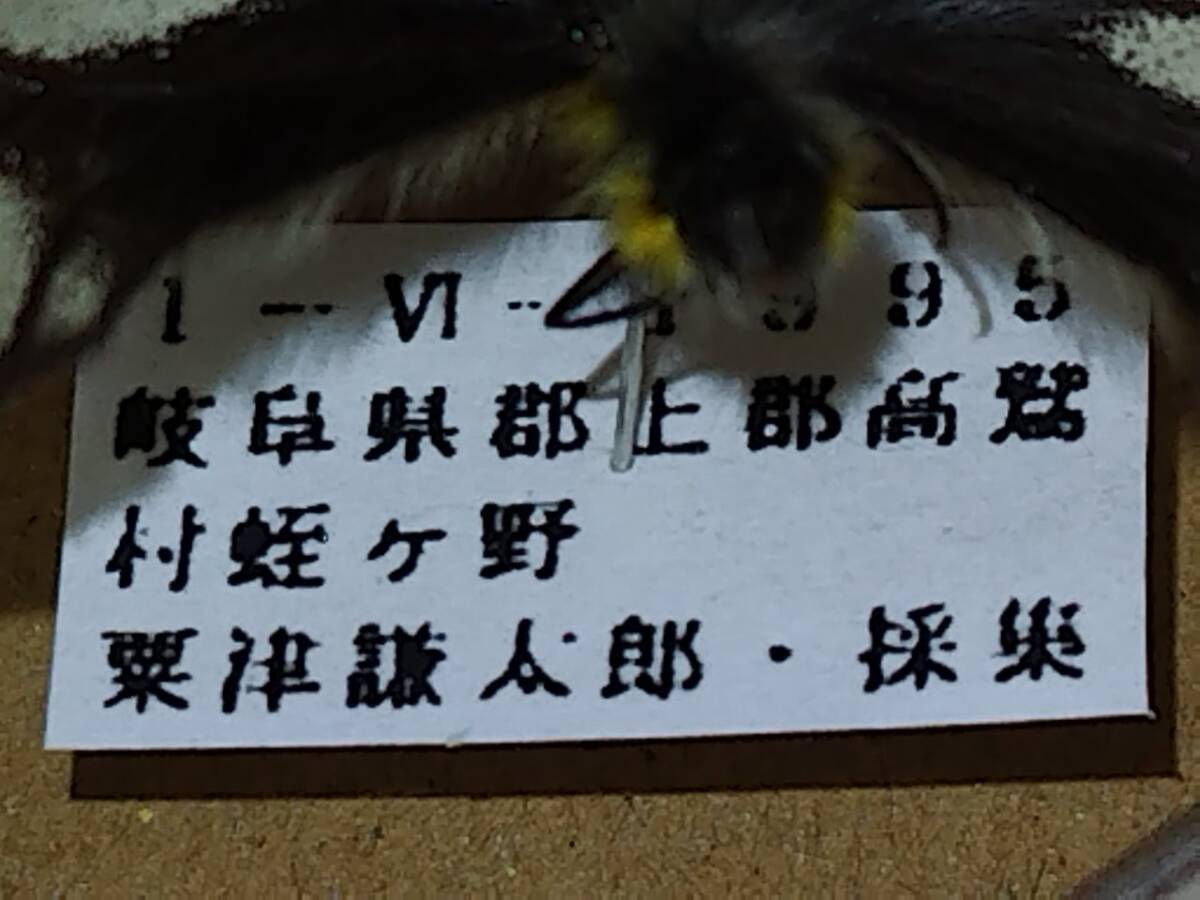 1-Ⅵ-1995
岐阜県郡上郡高鷲
村蛭ヶ野
粟津謙太郎・採巣